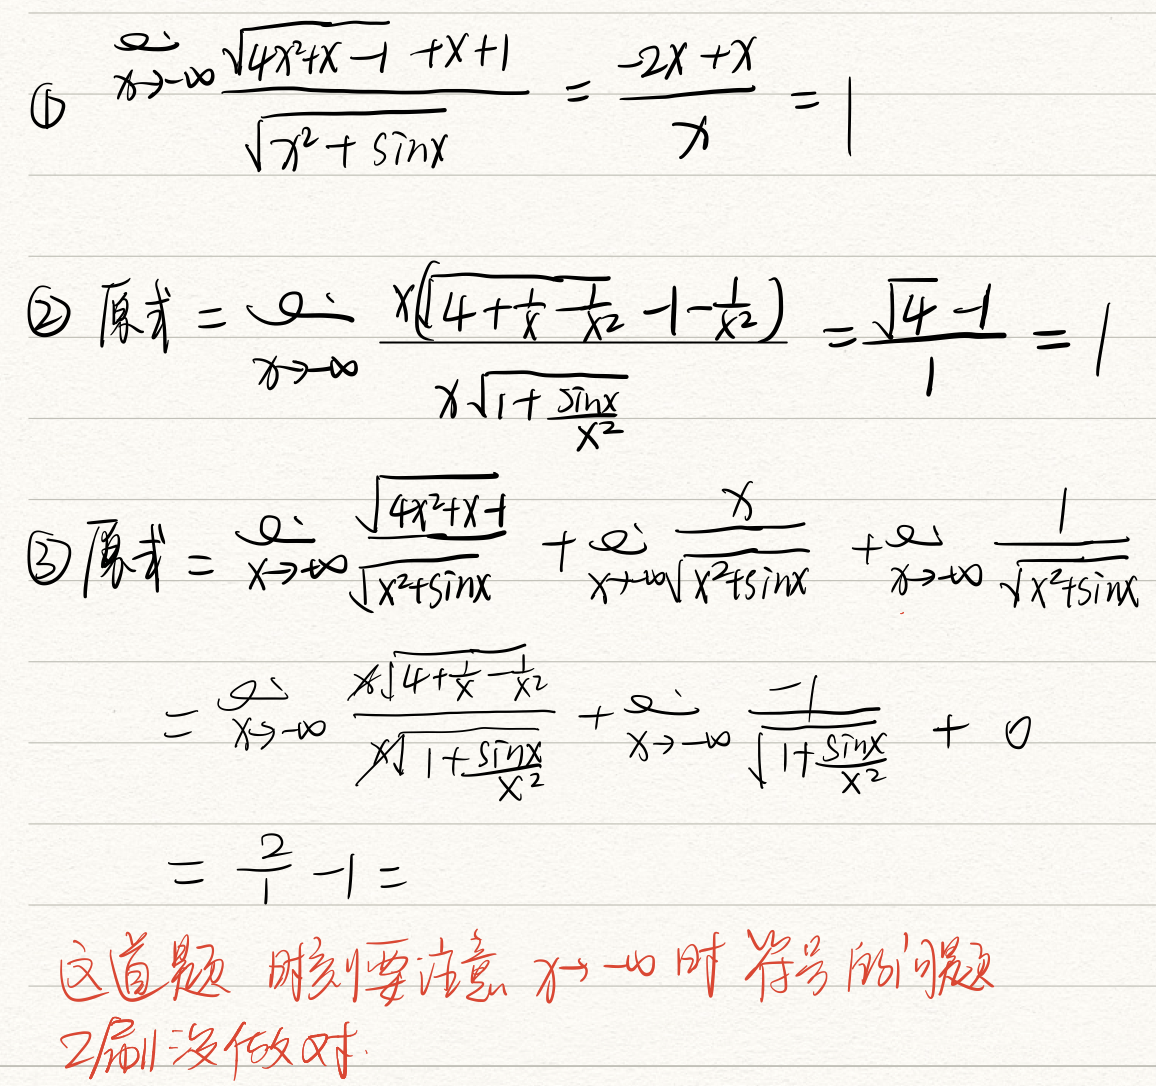 ① lim x→-∞ (√(4x²+x-1) +x+1)/√(x²+sinx) = (-2x+x)/x = 1
② 原式 = lim x→-∞ x(√(4+1/x-1/x²) -1-1/x²)/(x√(1+sinx/x²)) = (√4-1)/1 = 1
③ 原式 = lim x→-∞ √(4x²+x-1)/√(x²+sinx) + lim x→-∞ x/√(x²+sinx) + lim x→-∞ 1/√(x²+sinx)
= lim x→-∞ x√(4+1/x-1/x²)/(x√(1+sinx/x²)) + lim x→-∞ -1/√(1+sinx/x²) + 0
= 2/1 -1 =
这道题 时刻要注意 x→-∞ 时 符号的问题
2刷没做对.